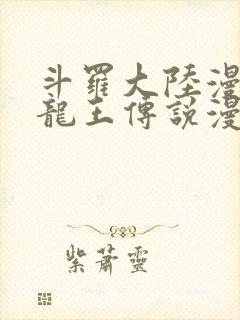 斗羅大陸漫
龍王傳說漫
紫蕭靈